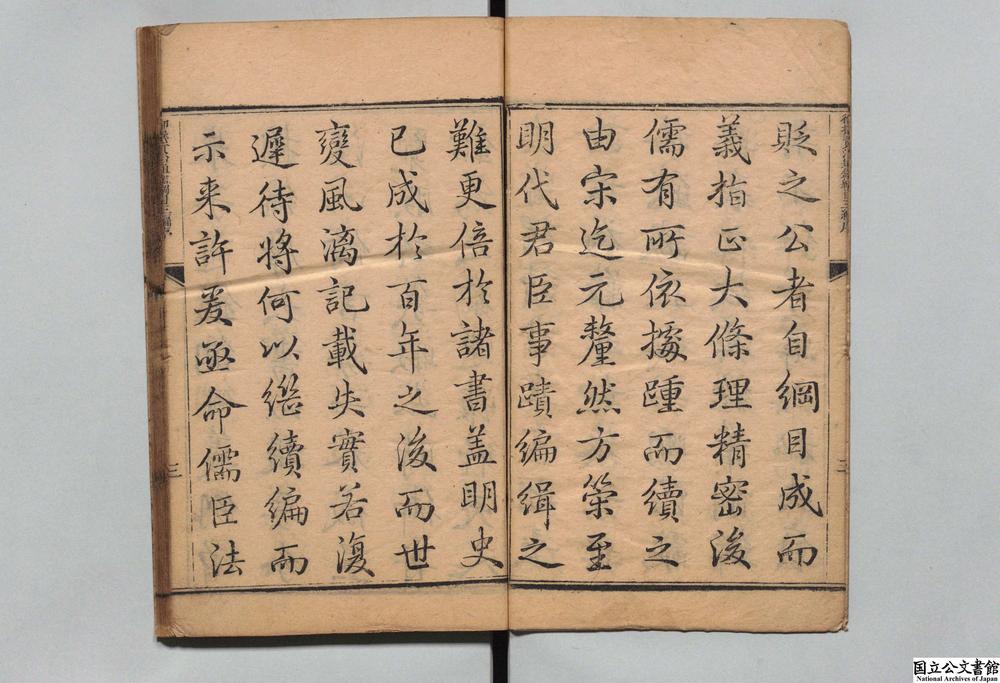 貶之公者自綱目成而
義指正大條理精密後
儒有所依據踵而續之
由宋迄元釐然方策至
明代君臣事蹟編緝之
難更倍於諸書盖明史
已成於百年之後而世
變風漓記載失實若復
遲待將何以繼續編而
示来許爰亟命儒臣法
三
国立公文書館
National Archives of Japan